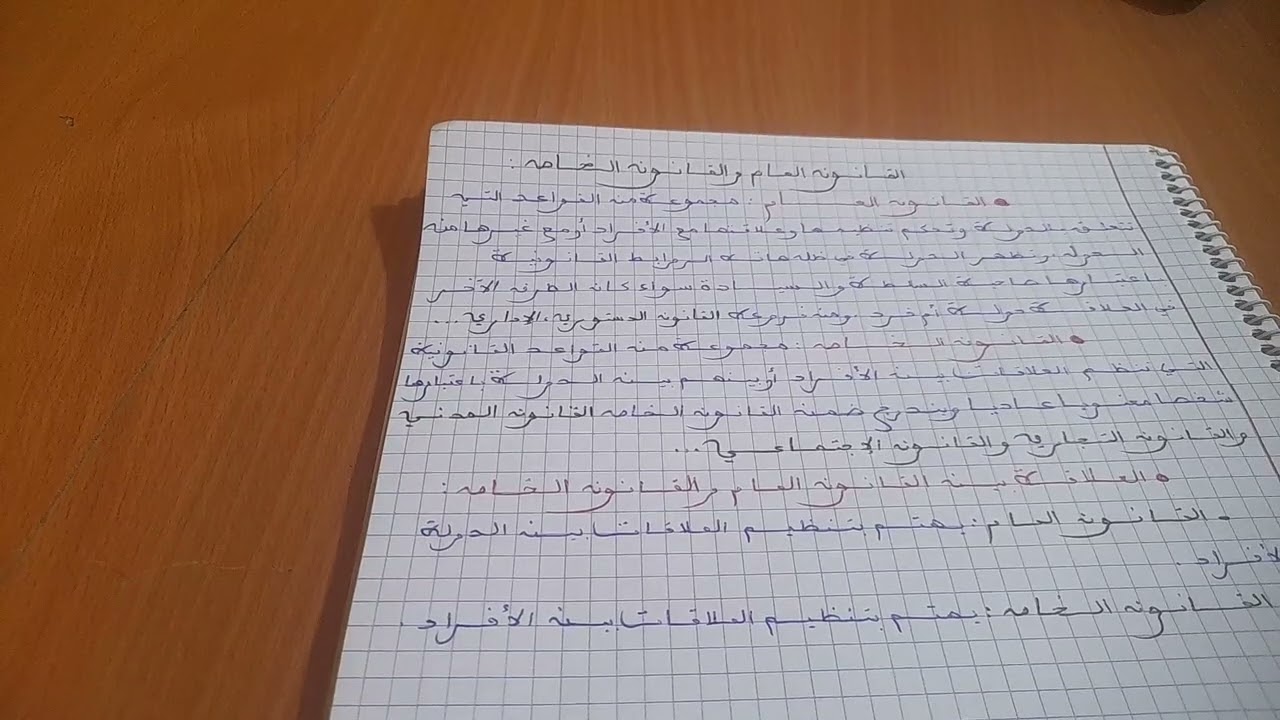 القانون العام والقانون الخاص :
• القانون العام : مجموعة من القواعد التي
تتعلق بالدولة وتحكم تنظيمها وعلاقتها مع الأفراد أو مع غيرها من
الدول وتظهر الدولة في هذه الروابط القانونية
باعتبارها صاحبة السلطة والسيادة سواء كان الطرف الآخر
في العلاقة دولة أم فرد ومن فروعه القانون الدستوري، الإداري ...
• القانون الخاص : مجموعة من القواعد القانونية
التي تنظم العلاقات بين الأفراد أو بينهم بين الدولة باعتبارها
شخصا معنويا عاديا ويندرج ضمن القانون الخاص القانون المدني
والقانون التجاري والقانون الاجتماعي ...
• العلاقة بين القانون العام والقانون الخاص :
- القانون العام : يهتم بتنظيم العلاقات بين الدولة
الأفراد.
القانون الخاص : يهتم بتنظيم العلاقات بين الأفراد.